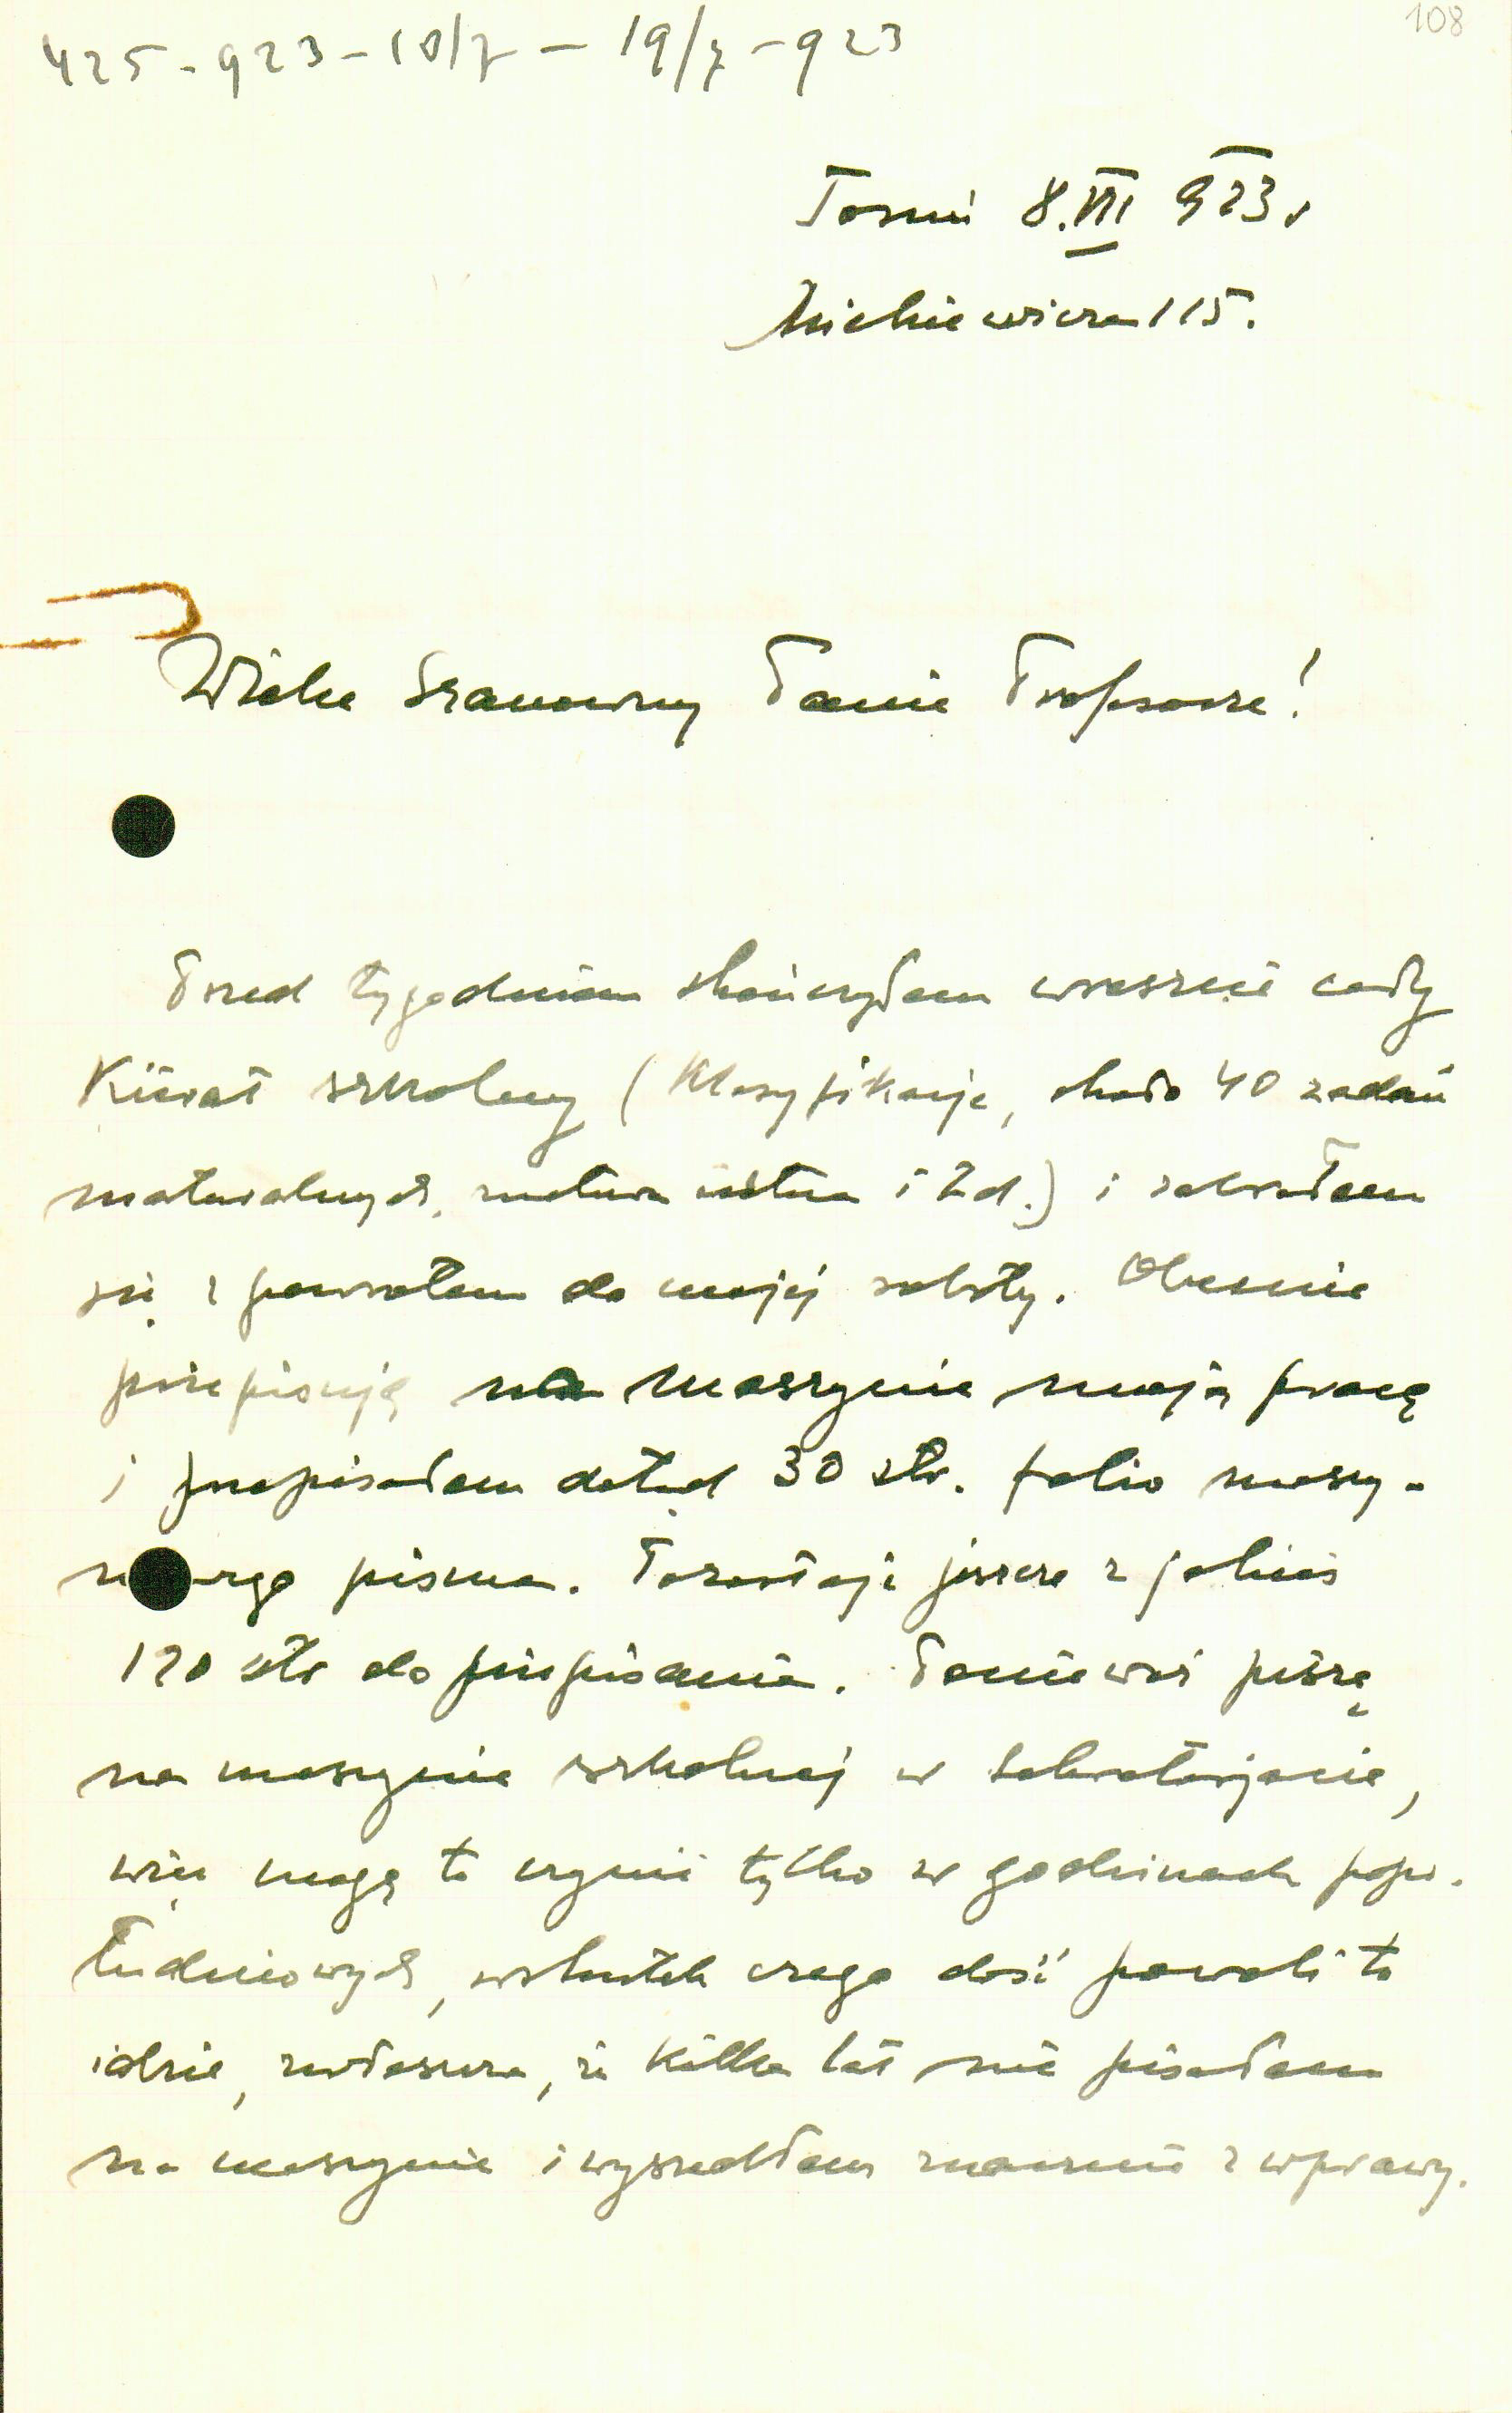 108
425-923-10/7 - 19/7-923
Toruń 8.VII 923 r
Mickiewicza 115.
Wielce Szanowny Panie Profesorze!
Przed tygodniem skończyłem wreszcie cały
szkolny (klasyfikacje, około 40 zadań
maturalnych, matura ustna i t.d.) i zabrałem
się z powrotem do mojej roboty. Obecnie
przepisuję na maszynie moją pracę
i przepisałem dotąd 30 str. folio maszy-
nowego pisma. Pozostaje jeszcze z jakieś
120 str do przepisania. Ponieważ piszę
na maszynie szkolnej w sekretarjacie,
więc mogę to czynić tylko w godzinach popo-
łudniowych, wskutek czego dość powoli to
idzie, zwłaszcza, że kilka lat nie pisałem
na maszynie i wyszedłem znacznie z wprawy.